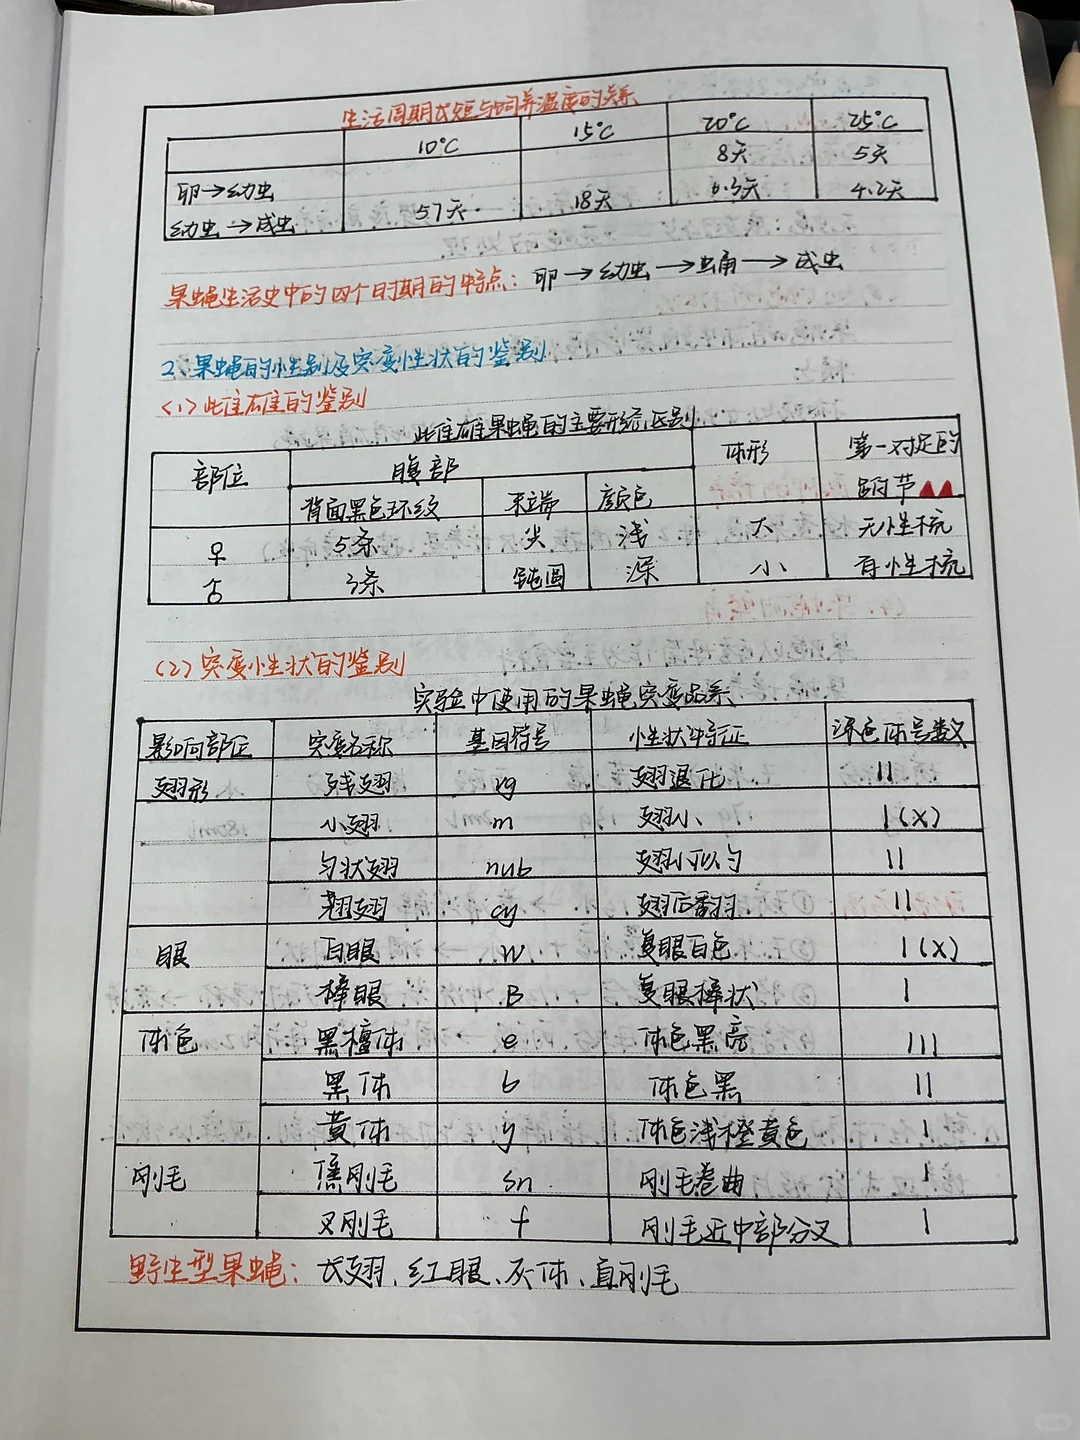 生活周期长短与饲养温度的关系
10℃ 15℃ 20℃ 25℃
卵→幼虫 8天 5天
幼虫→成虫 57天 18天 6.3天 4.2天
果蝇生活史中的四个时期的特点：卵→幼虫→蛹→成虫
2、果蝇的性别及突变性状的鉴别
(1)雌雄的鉴别
雌雄果蝇的主要形态区别
部位 腹部 体形 第一对足的
背面黑色环纹 末端 颜色 跗节
♀ 5条 尖 浅 大 无性梳
♂ 3条 钝圆 深 小 有性梳
(2)突变性状的鉴别
实验中使用的果蝇突变品系
影响部位 突变名称 基因符号 性状特征 染色体号数
翅形 残翅 vg 翅退化 II
小翅 m 翅小 I(X)
勺状翅 nub 翅小似勺 II
翘翅 cy 翅后翻 II
眼 白眼 w 复眼白色 I(X)
棒眼 B 复眼棒状 I
体色 黑檀体 e 体色黑亮 III
黑体 b 体色黑 II
黄体 y 体色浅橙黄色 I
刚毛 焦刚毛 sn 刚毛卷曲 I
叉刚毛 f 刚毛近中部分叉 I
野生型果蝇：长翅、红眼、灰体、直刚毛